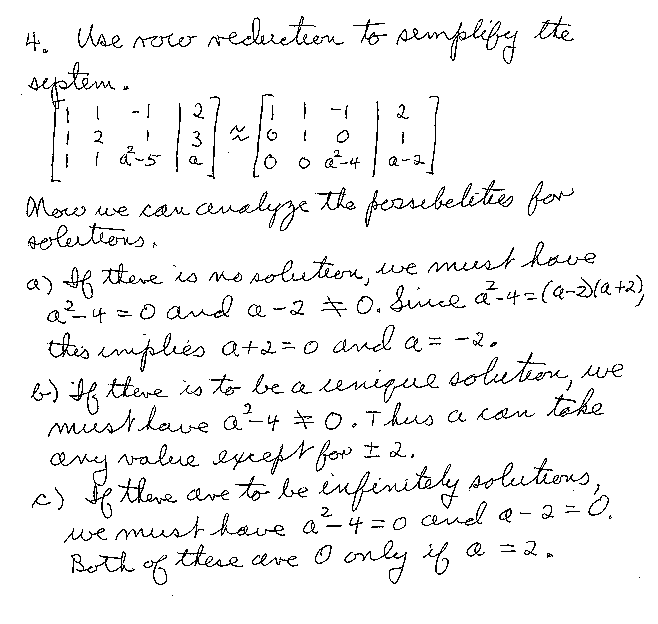 4. Use row reduction to simplify the
system.
[1 1 -1 | 2] ≈ [1 1 -1 | 2]
[1 2 1 | 3] [0 1 0 | 1]
[1 1 a²-5 | a] [0 0 a²-4 | a-2]
Now we can analyze the possibilities for
solutions.
a) If there is no solution, we must have
a²-4=0 and a-2≠0. Since a²-4=(a-2)(a+2),
this implies a+2=0 and a=-2.
b) If there is to be a unique solution, we
must have a²-4≠0. Thus a can take
any value except for ±2.
c) If there are to be infinitely solutions,
we must have a²-4=0 and a-2=0.
Both of these are 0 only if a=2.